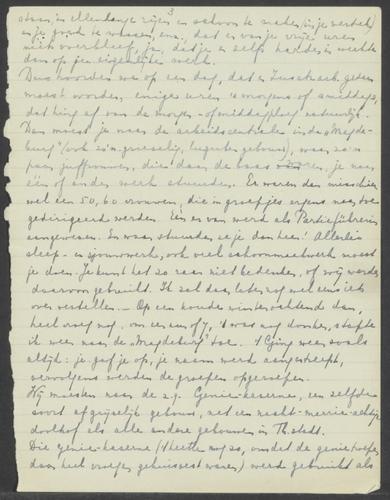 3
staan, in ellenlange rijen en schoon te maken, in je verdek
en je goed te wassen, enz., dat er van je vrije uren
niet overbleef, ja, dat je er zelf harder in werkte
dan op je eigenlijke werk.
Dan hoorden we op een dag, dat er Zusatzarb. gedaan
moest worden, eenige uren 's morgens of 's middags,
dat hing af van de morgen- of middagploeg natuurlijk.
Dan moest je naar de arbeidscentrale in de „Magde-
burg" (ook zo'n griezelig, luguber gebouw), waar zo'n
paar juffrouwen, die daar de baas waren, je naar
één of ander werk stuurden. Er waren dan misschien
wel een 50, 60 vrouwen, die in groepjes ergens naar toe
gedirigeerd werden. Een er van werd als Partieführerin
aangewezen. En waar stuurden ze je dan heen? Allerlei
sleep- en sjouwwerk, ook veel schoonmaakwerk moest
je doen. Je kunt het zo raar niet bedenken, of wij werden
daarvoor gebruikt. Ik zal daar later nog wel eens iets
over vertellen. – Op een koude winterochtend dan,
heel vroeg nog, om een uur of 7, 't was nog donker, stapte
ik weer naar de „Magdeburg" toe. 't Ging weer zoals
altijd: je gaf je op, je naam werd aangestreept,
vervolgens werden de groepen opgeroepen.
Wij moesten naar de z.g. Genie-kaserne, een zelfde
soort afgrijselijk gebouw, net een nacht-merrie-achtig
doolhof als alle andere gebouwen in Th.stadt.
Die genie-kaserne ('t heette nog zo, omdat de genietroepen
daar heel vroeger gehuisvest waren) werd gebruikt als